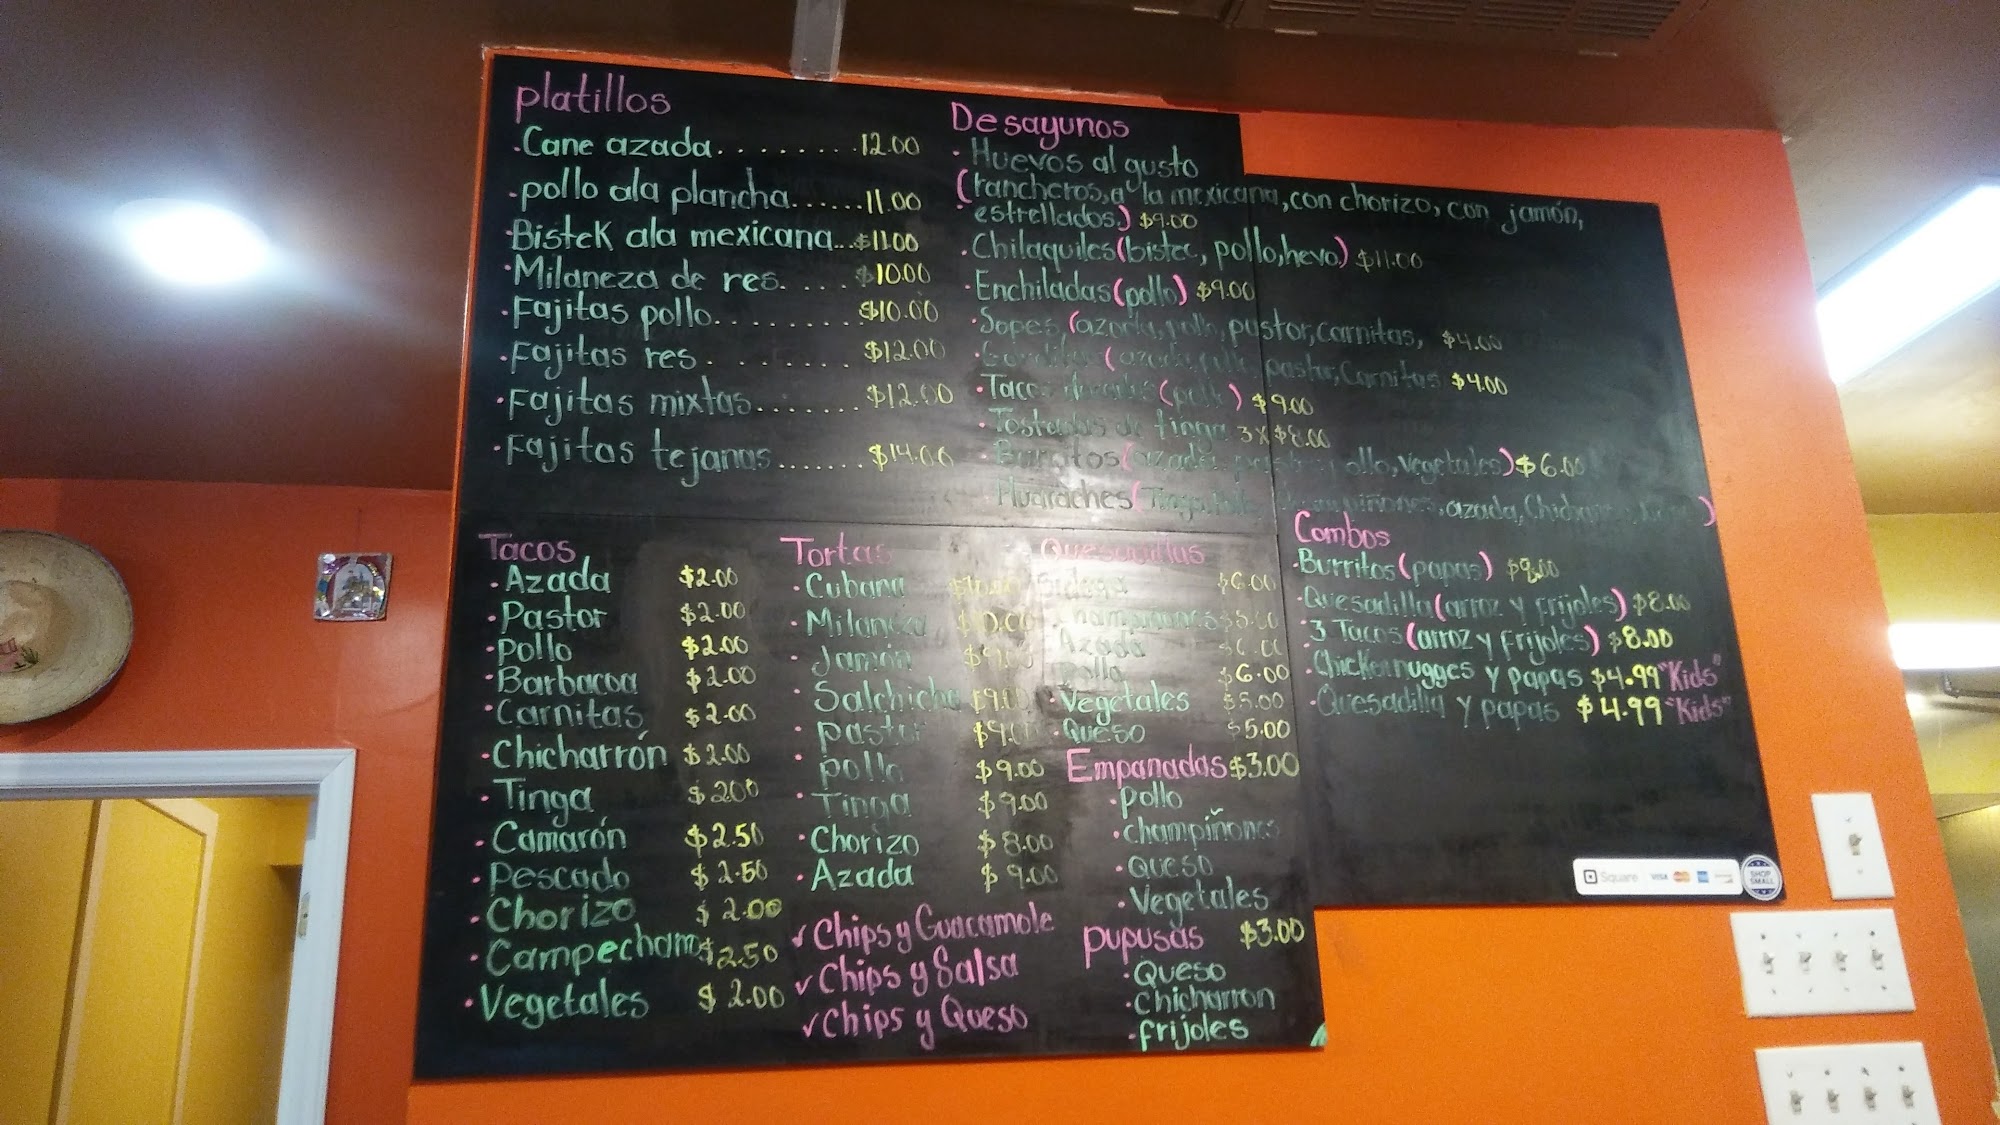 platillos
· Cane azada........12.00
· pollo ala plancha......11.00
· Bistek ala mexicana...$11.00
· Milaneza de res.....$10.00
· Fajitas pollo.........$10.00
· Fajitas res.........$12.00
· Fajitas mixtas.......$12.00
· Fajitas tejanas.......$14.00
Desayunos
· Huevos al gusto
(rancheros, a la mexicana, con chorizo, con jamón,
estrellados.) $9.00
· Chilaquiles (bistec, pollo, hevo.) $11.00
· Enchiladas (pollo) $9.00
· Sopes (azada, pollo, pastor, carnitas, $4.00
pastor, Carnitas $4.00
· Taco (pollo) $9.00
· Tostadas de tinga 3x$8.00
· Burritos (azada, pollo, vegetales) $6.00
Huaraches (Tinga, azada,
Tacos
· Azada $2.00
· Pastor $2.00
· Pollo $2.00
· Barbacoa $2.00
· Carnitas $2.00
· Chicharrón $2.00
· Tinga $200
· Camarón $2.50
· Pescado $2.50
· Chorizo $2.00
· Campechano $2.50
· Vegetales $2.00
Tortas
· Cubana
· Milaneza $10.00
· Jamón $9.00
· Salchicha $9.00
· Pastor $9.00
· pollo $9.00
· Tinga $9.00
· Chorizo $8.00
· Azada $9.00
✓ Chips y Guacamole
✓ Chips y Salsa
✓ Chips y Queso
Quesadillas
$6.00
champiñones $5.00
Azada
pollo $6.00
· Vegetales $5.00
· Queso $5.00
Empanadas $3.00
· pollo
· champiñones
· Queso
· Vegetales
pupusas $3.00
· Queso
· Chicharron
· frijoles
Combos
· Burritos (papas)
· Quesadilla (arroz y frijoles) $8.00
· 3 Tacos (arroz y frijoles) $8.00
· Chicken nugges y papas $4.99 "Kids"
· Quesadilla y papas $4.99 "Kids"
Square VISA
SHOP SMALL